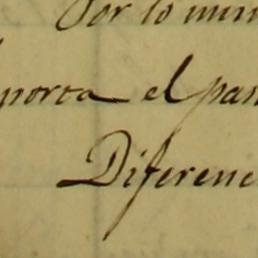 Por lo mim
porta el pan
Diferenc